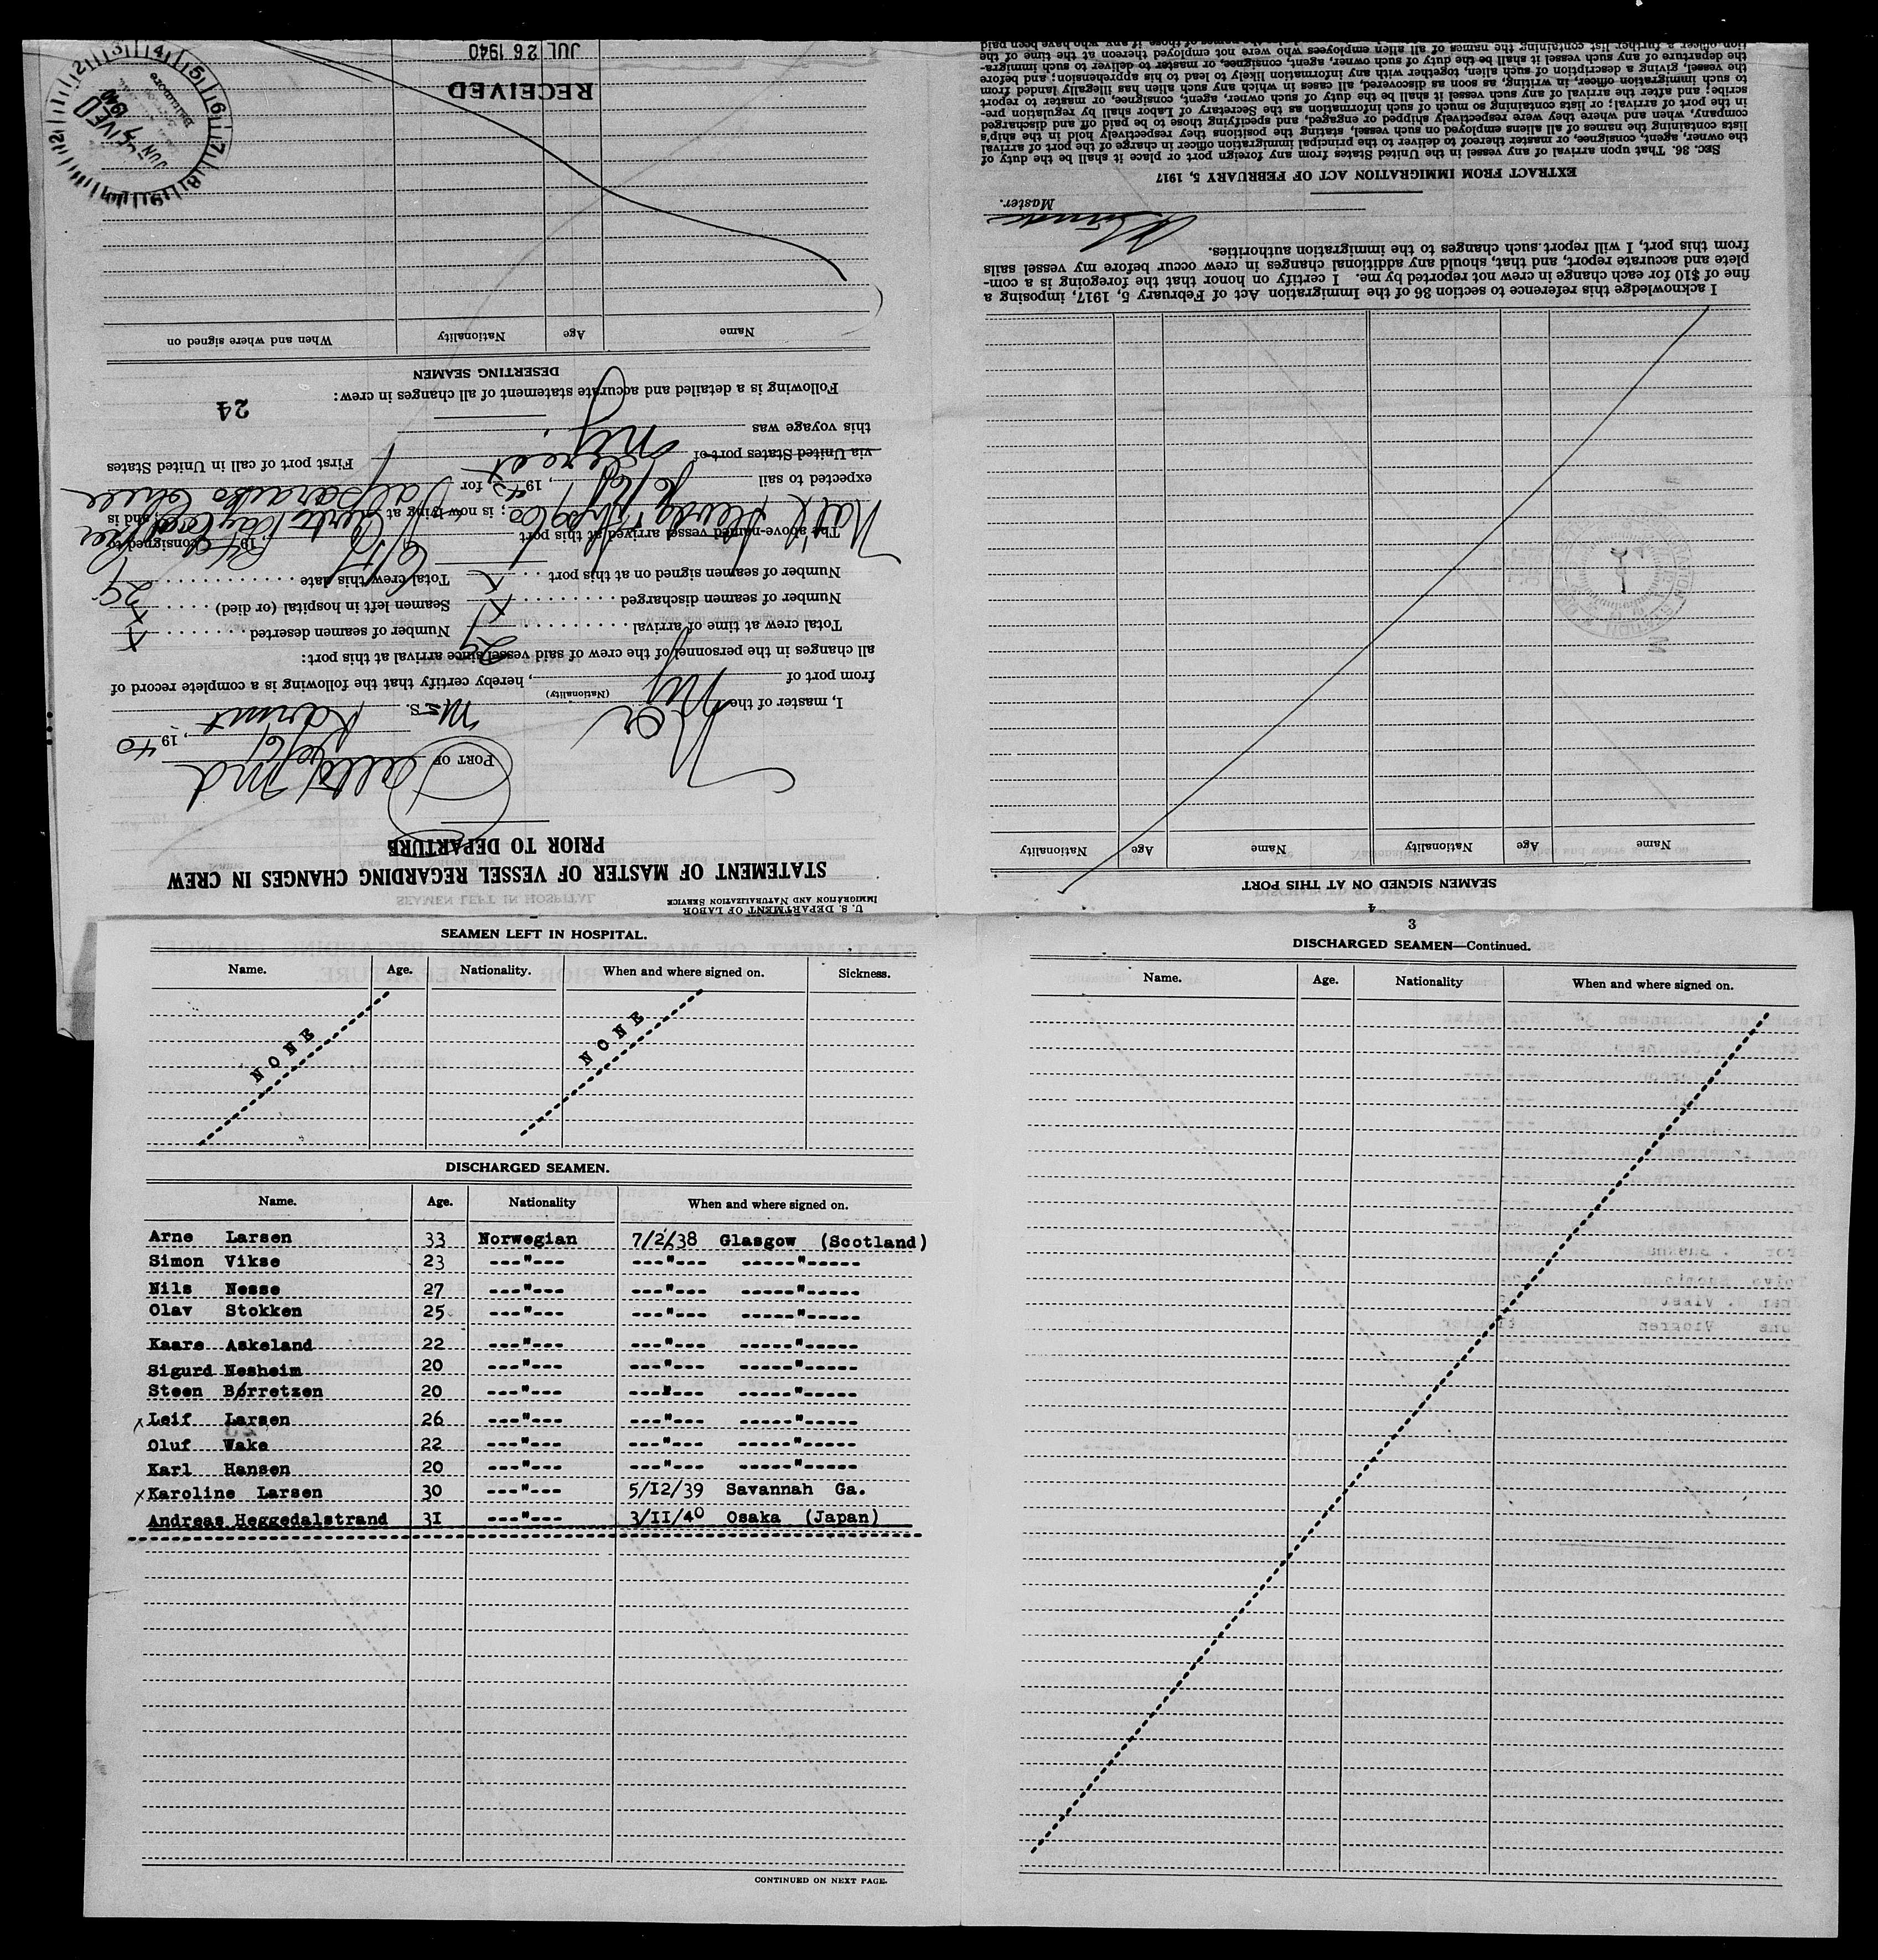 U. S. DEPARTMENT OF LABOR
IMMIGRATION AND NATURALIZATION SERVICE
STATEMENT OF MASTER OF VESSEL REGARDING CHANGES IN CREW
PRIOR TO DEPARTURE
PORT OF Balto Md
, 1940
I, master of the Nor M-S.
(Nationality)
from port of , hereby certify that the following is a complete record of
all changes in the personnel of the crew of said vessel since arrival at this port:
Total crew at time of arrival 29 Number of seamen deserted x
Number of seamen discharged x Seamen left in hospital (or died) x
Number of seamen signed on at this port x Total crew this date 29
The above-named vessel arrived at this port 6/5 , 19 consigned to
; is now lying at Curtis Bay ; and is
expected to sail , 19 for Valparaiso Chile
via United States port of direct First port of call in United States
this voyage was NY.
Following is a detailed and accurate statement of all changes in crew:
24
DESERTING SEAMEN
Name Age Nationality When and where signed on
RECEIVED
JUL 26 1940
RECEIVED
JUN
Baltimore
4
SEAMEN SIGNED ON AT THIS PORT
Name Age Nationality Name Age Nationality
I acknowledge this reference to section 36 of the Immigration Act of February 5, 1917, imposing a
fine of $10 for each change in crew not reported by me. I certify on honor that the foregoing is a com-
plete and accurate report, and that, should any additional changes in crew occur before my vessel sails
from this port, I will report such changes to the immigration authorities.
Master.
EXTRACT FROM IMMIGRATION ACT OF FEBRUARY 5, 1917
SEC. 36. That upon arrival of any vessel in the United States from any foreign port or place it shall be the duty of
the owner, agent, consignee, or master thereof to deliver to the principal immigration officer in charge of the port of arrival
lists containing the names of all aliens employed on such vessel, stating the positions they respectively hold in the ship's
company, when and where they were respectively shipped or engaged, and specifying those to be paid off and discharged
in the port of arrival; or lists containing so much of such information as the Secretary of Labor shall by regulation pre-
scribe; and after the arrival of any such vessel it shall be the duty of such owner, agent, consignee, or master to report
to such immigration officer, in writing, as soon as discovered, all cases in which any such alien has illegally landed from
the vessel, giving a description of such alien, together with any information likely to lead to his apprehension; and before
the departure of any such vessel it shall be the duty of such owner, agent, consignee, or master to deliver to such immigra-
tion officer a further list containing the names of all alien employees who were not employed thereon at the time of the
SEAMEN LEFT IN HOSPITAL.
Name. Age. Nationality. When and where signed on. Sickness.
NONE NONE
DISCHARGED SEAMEN.
Name. Age. Nationality When and where signed on.
Arne Larsen 33 Norwegian 7/2/38 Glasgow (Scotland)
Simon Vikse 23 ---"--- ---"--- -----"-----
Nils Nesse 27 ---"--- ---"--- -----"-----
Olav Stokken 25 ---"--- ---"--- -----"-----
Kaare Askeland 22 ---"--- ---"--- -----"-----
Sigurd Nesheim 20 ---"--- ---"--- -----"-----
Steen Børretzen 20 ---"--- ---"--- -----"-----
x Leif Larsen 26 ---"--- ---"--- -----"-----
Oluf Wake 22 ---"--- ---"--- -----"-----
Karl Hansen 20 ---"--- ---"--- -----"-----
x Karoline Larsen 30 ---"--- 5/12/39 Savannah Ga.
Andreas Heggedalstrand 31 ---"--- 3/11/40 Osaka (Japan)
CONTINUED ON NEXT PAGE.
3
DISCHARGED SEAMEN—Continued.
Name. Age. Nationality When and where signed on.